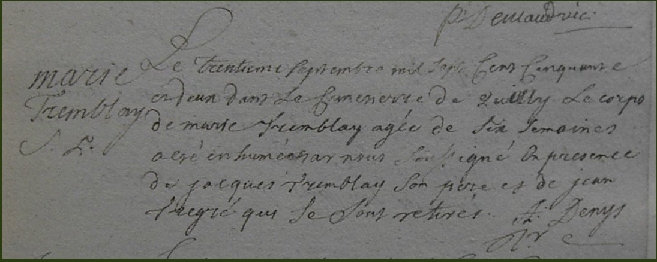 marie
Tremblay
Le trentieme septembre mil sept Cent Cinquante
et deux dans Le Cimetierre de Quilly Le corps
de marie Tremblay agée de six semaines
a eté enhumée par nous soussigné En presence
de jacques tremblay son pere et de jean
qui se sont retirés. Denys